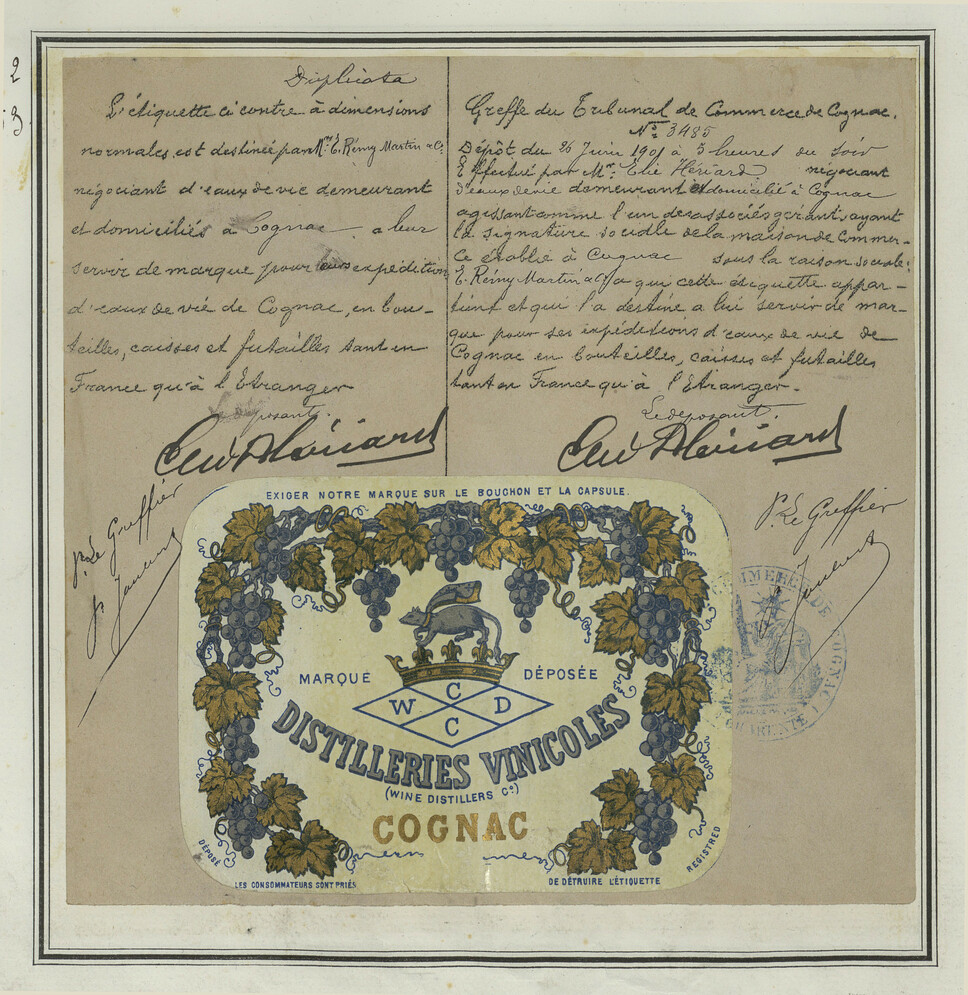 2
3.
Duplicata
L'étiquette ci contre à dimensions
normales, est destinée par Mrs E. Rémy Martin & Co
négociant d'eaux de vie demeurant
et domiciliés à Cognac a leur
servir de marque pour leurs expéditions
d'eaux de vie de Cognac, en bou-
teilles, caisses et futailles tant en
France qu'à l'Etranger
Le déposant.
Elie Hériard
Pr. Le Greffier
Greffe du Tribunal de Commerce de Cognac.
No. 3485
Dépôt du 26 Juin 1901 à 3 heures du soir
Effectué par Mr. Elie Hériard négociant
d'eaux de vie demeurant et domicilié à Cognac
agissant comme l'un des associés gérants, ayant
la signature sociale de la maison de Commer-
ce établie à Cognac sous la raison sociale:
E. Rémy Martin & Co a qui cette étiquette appar-
tient et qui l'a destine a lui servir de mar-
que pour ses expéditions d'eaux de vie de
Cognac en bouteilles, caisses et futailles
tant en France qu'à l'Etranger.
Le deposant.
Elie Hériard
Pr. Le Greffier
EXIGER NOTRE MARQUE SUR LE BOUCHON ET LA CAPSULE.
MARQUE DÉPOSÉE
C
W D
C
DISTILLERIES VINICOLES
(WINE DISTILLERS Co.)
COGNAC
DÉPOSÉ
REGISTRED
LES CONSOMMATEURS SONT PRIÉS DE DÉTRUIRE L'ÉTIQUETTE
COMMERCE DE COGNAC
CHARENTE